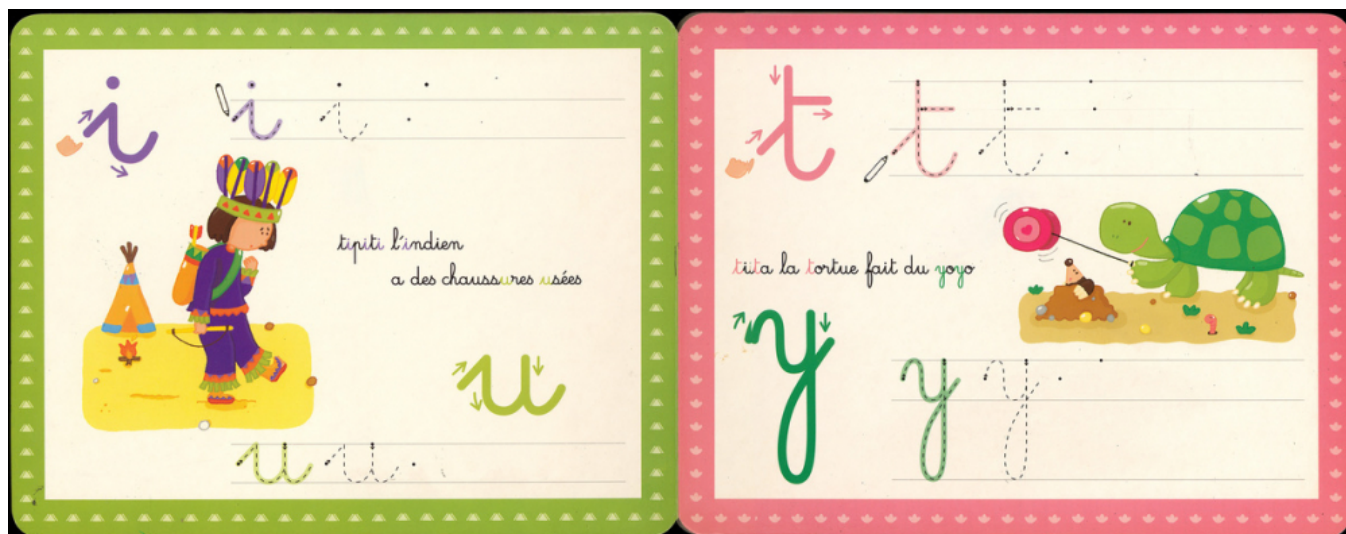 i i i
tipiti l'indien
a des chaussures usées
u
u u
t t t
tita la tortue fait du yoyo
y y y